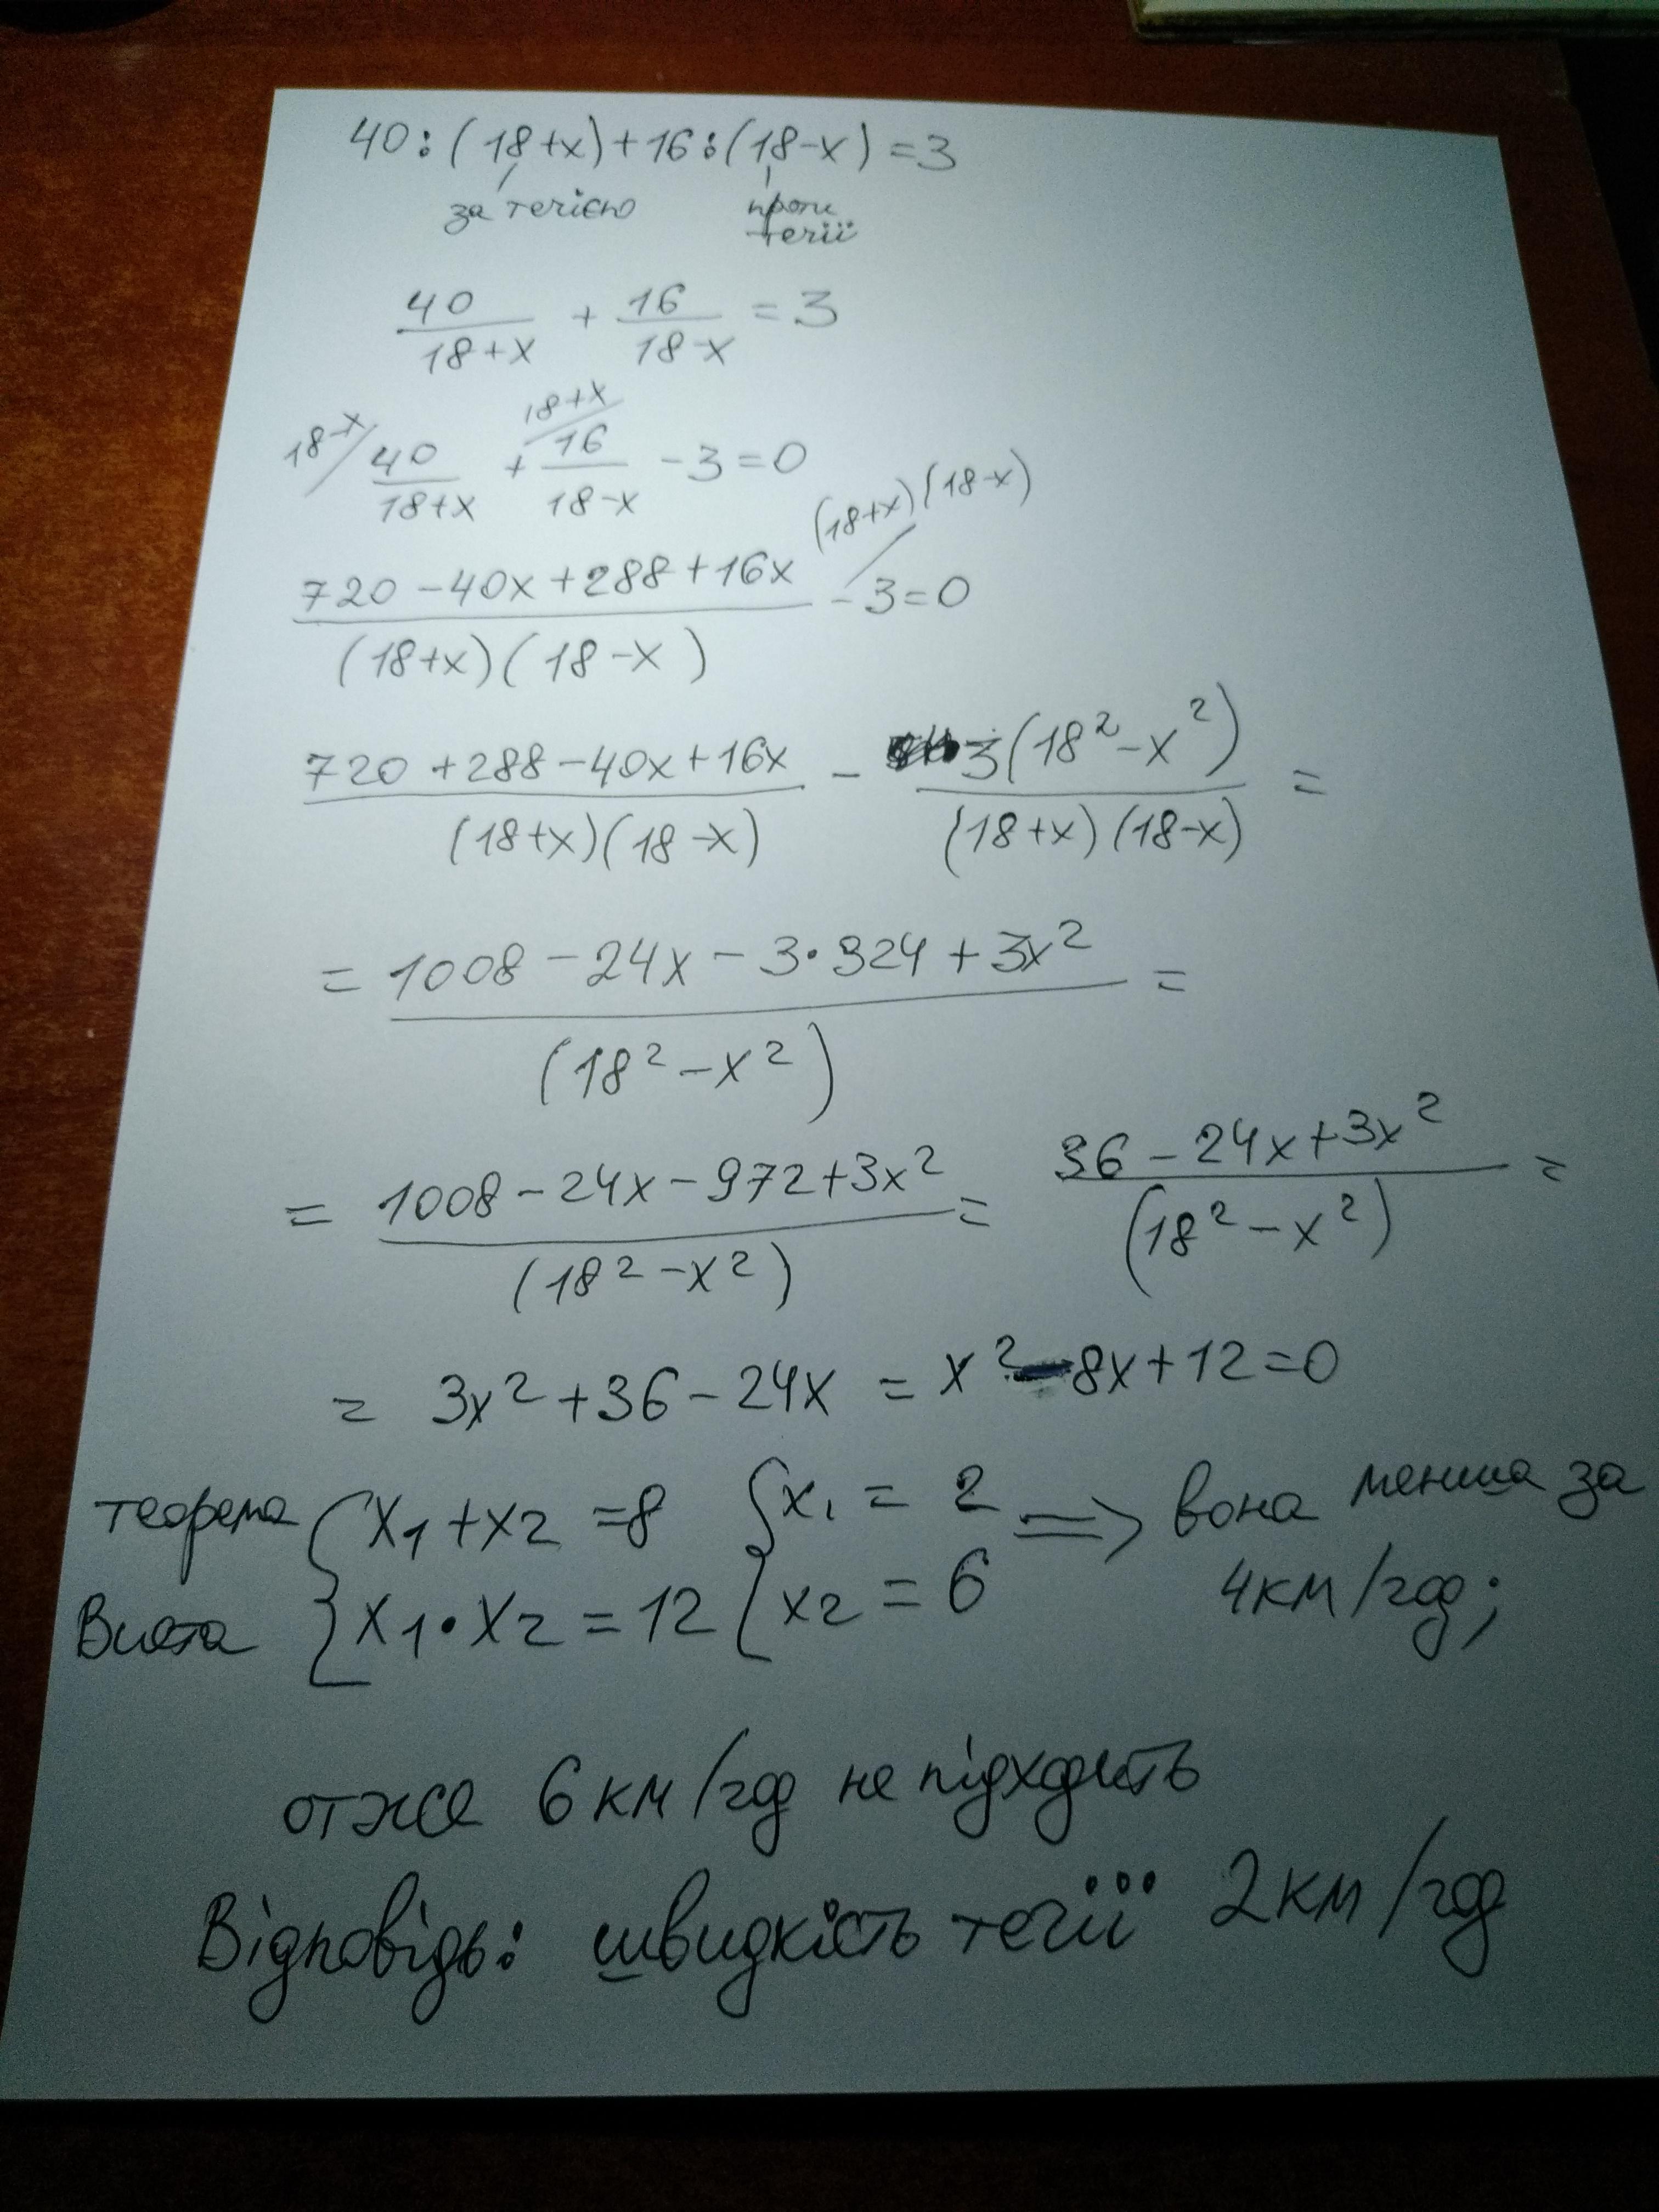 40:(18+x)+16:(18-x)=3
за течією проти течії
40/(18+x) + 16/(18-x) = 3
18-x/ 40/(18+x) + 18+x/ 16/(18-x) - 3 = 0
(720-40x+288+16x)/((18+x)(18-x)) - 3 = 0 (18+x)(18-x)/
(720+288-40x+16x)/((18+x)(18-x)) - 3(18²-x²)/((18+x)(18-x)) =
= (1008-24x-3·324+3x²)/(18²-x²) =
= (1008-24x-972+3x²)/(18²-x²) = (36-24x+3x²)/(18²-x²) =
= 3x²+36-24x = x²-8x+12=0
теорема { x₁+x₂=8 { x₁=2 => вона менша за
Виєта { x₁·x₂=12 { x₂=6 4км/год;
отже 6км/год не підходить
Відповідь: швидкість течії 2км/год